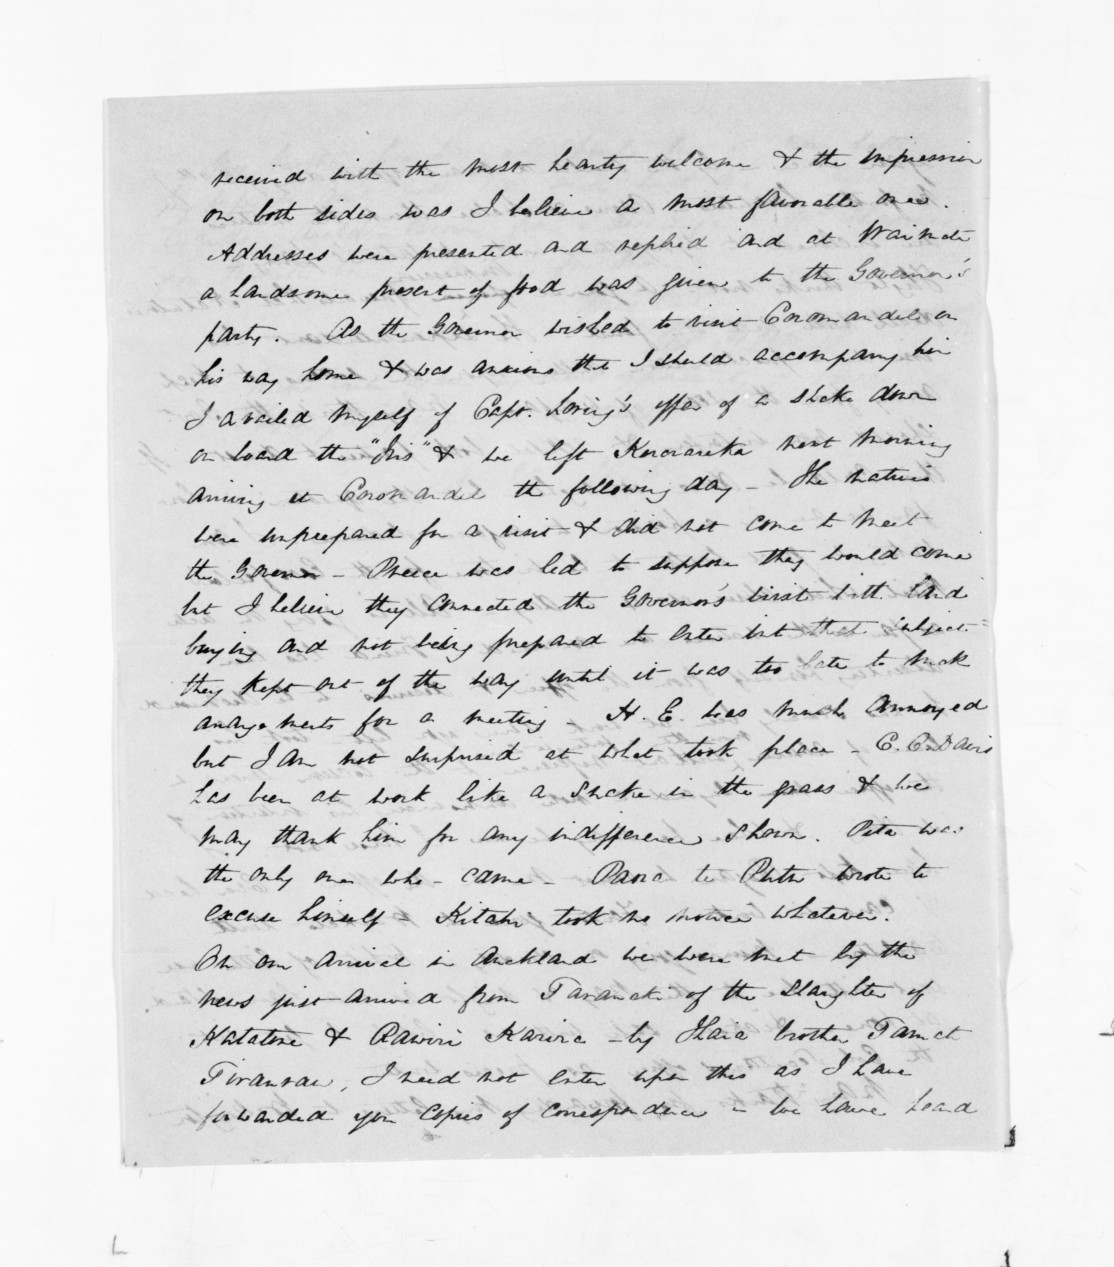 received with the most hearty welcome & the impression
on both sides was I believe a most favorable one.
Addresses were presented and replied and at Waimate
a handsome present of food was given to the Governor's
party. As the Governor wished to visit Coromandel on
his way home & was anxious that I should accompany him
I availed myself of Capt. Loring's offer of a shake down
on board the "Iris" & we left Kororareka next morning
arriving at Coromandel the following day - The natives
were unprepared for a visit & did not come to meet
the Governor - Preece was led to suppose they would come
but I believe they connected the Governor's visit with land
buying and not being prepared to enter int that subject
they kept out of the way until it was too late to make
arrangements for a meeting - H. E. was much annoyed
but I am not surprised at what took place - C. C. Davis
has been at work like a snake in the grass & we
may thank him for any indifference shown. Pita was
the only one who - came - Paora te Putu wrote to
excuse himself - Kitahi took no notice whatever.
On our arrival in Auckland we were met by the
news just arrived from Taranaki of the slaughter of
Katatore & Rawiri Karira - by Ihaia brother Tamati
Tiraurau, I need not enter upon this as I have
forwarded you copies of correspondence - we have heard